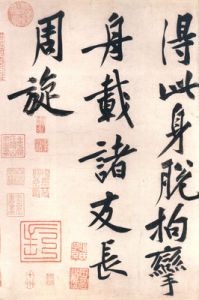 得此身脱拘攣
舟載諸友長
周旋